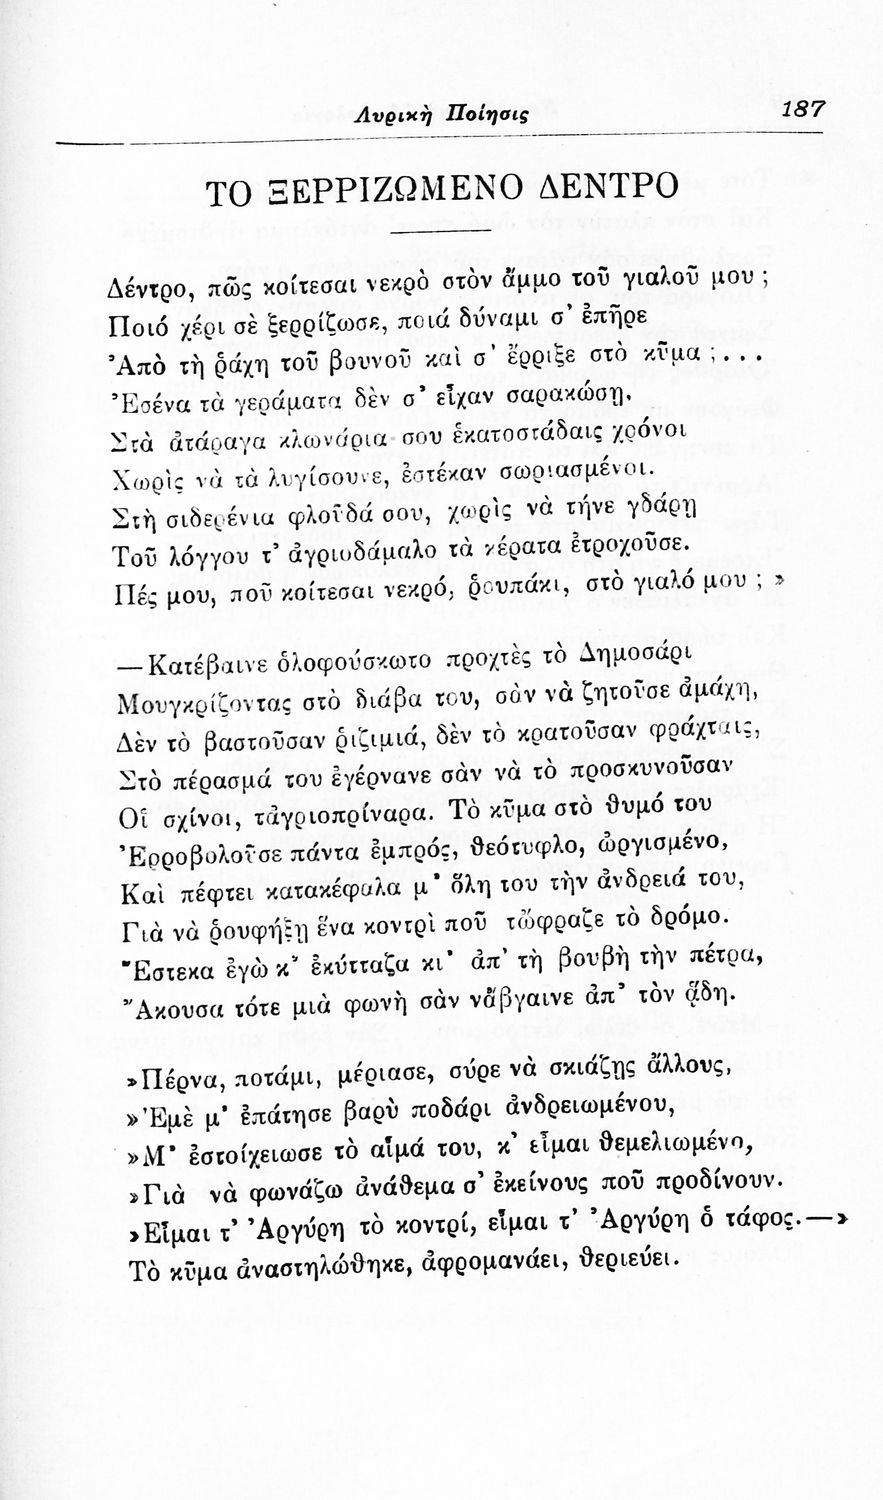 Λυρικὴ Ποίησις 187
ΤΟ ΞΕΡΡΙΖΩΜΕΝΟ ΔΕΝΤΡΟ
Δέντρο, πῶς κοίτεσαι νεκρὸ στὸν ἄμμο τοῦ γιαλοῦ μου ;
Ποιό χέρι σὲ ξερρίζωσε, ποιά δύναμι σ' ἐπῆρε
Ἀπὸ τὴ ῥάχη τοῦ βουνοῦ καὶ σ' ἔρριξε στὸ κῦμα ;...
Ἐσένα τὰ γεράματα δὲν σ' εἶχαν σαρακώσῃ.
Στὰ ἀτάραγα κλωνάρια σου ἑκατοστάδαις χρόνοι
Χωρὶς νὰ τὰ λυγίσουνε, ἐστέκαν σωριασμένοι.
Στὴ σιδερένια φλοῦδά σου, χωρὶς νὰ τήνε γδάρῃ
Τοῦ λόγγου τ' ἀγριοδάμαλο τὰ κέρατα ἐτροχοῦσε.
Πές μου, ποῦ κοίτεσαι νεκρό, ῥουπάκι, στὸ γιαλό μου ; »
— Κατέβαινε ὁλοφούσκωτο προχτὲς τὸ Δημοσάρι
Μουγκρίζοντας στὸ διάβα του, σὰν νὰ ζητοῦσε ἀμάχη,
Δὲν τὸ βαστοῦσαν ῥιζιμιά, δὲν τὸ κρατοῦσαν φράχταις,
Στὸ πέρασμά του ἐγέρνανε σὰν νὰ τὸ προσκυνοῦσαν
Οἱ σχίνοι, τἀγριοπρίναρα. Τὸ κῦμα στὸ θυμό του
Ἐρροβολοῦσε πάντα ἐμπρός, θεότυφλο, ὠργισμένο,
Καὶ πέφτει κατακέφαλα μ' ὅλη του τὴν ἀνδρειά του,
Γιὰ νὰ ῥουφήξῃ ἕνα κοντρὶ ποῦ τὤφραζε τὸ δρόμο.
Ἔστεκα ἐγὼ κ' ἐκύτταζα κι' ἀπ' τὴ βουβὴ τὴν πέτρα,
Ἄκουσα τότε μιὰ φωνὴ σὰν νἄβγαινε ἀπ' τὸν ᾅδη.
»Πέρνα, ποτάμι, μέριασε, σύρε νὰ σκιάζῃς ἄλλους,
»Ἐμὲ μ' ἐπάτησε βαρὺ ποδάρι ἀνδρειωμένου,
»Μ' ἐστοίχειωσε τὸ αἷμά του, κ' εἶμαι θεμελιωμένο,
»Γιὰ νὰ φωνάζω ἀνάθεμα σ' ἐκείνους ποῦ προδίνουν.
»Εἶμαι τ' Ἀργύρη τὸ κοντρί, εἶμαι τ' Ἀργύρη ὁ τάφος.—»
Τὸ κῦμα ἀναστηλώθηκε, ἀφρομανάει, θεριεύει.